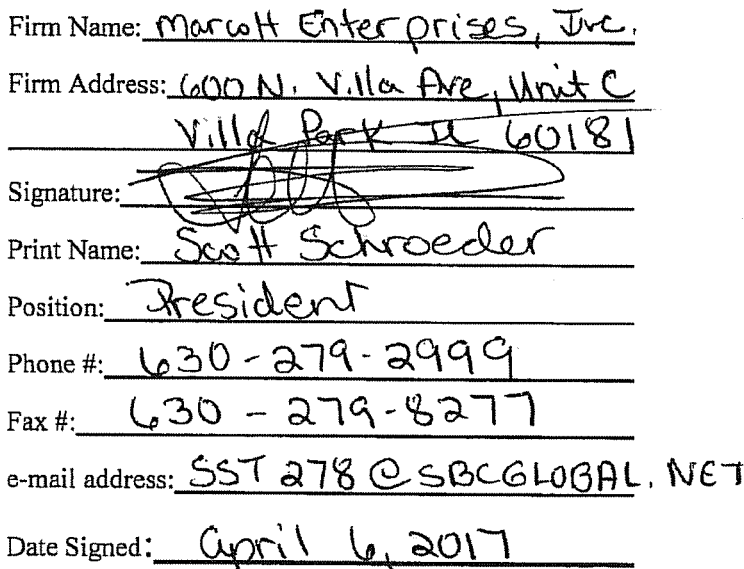 Firm Name: Marcott Enterprises, Inc.
Firm Address: 600 N. Villa Ave, Unit C
Villa Park IL 60181
Signature:
Print Name: Scott Schroeder
Position: President
Phone #: 630-279-2999
Fax #: 630-279-8277
e-mail address: SST278@SBCGLOBAL.NET
Date Signed: April 6, 2017